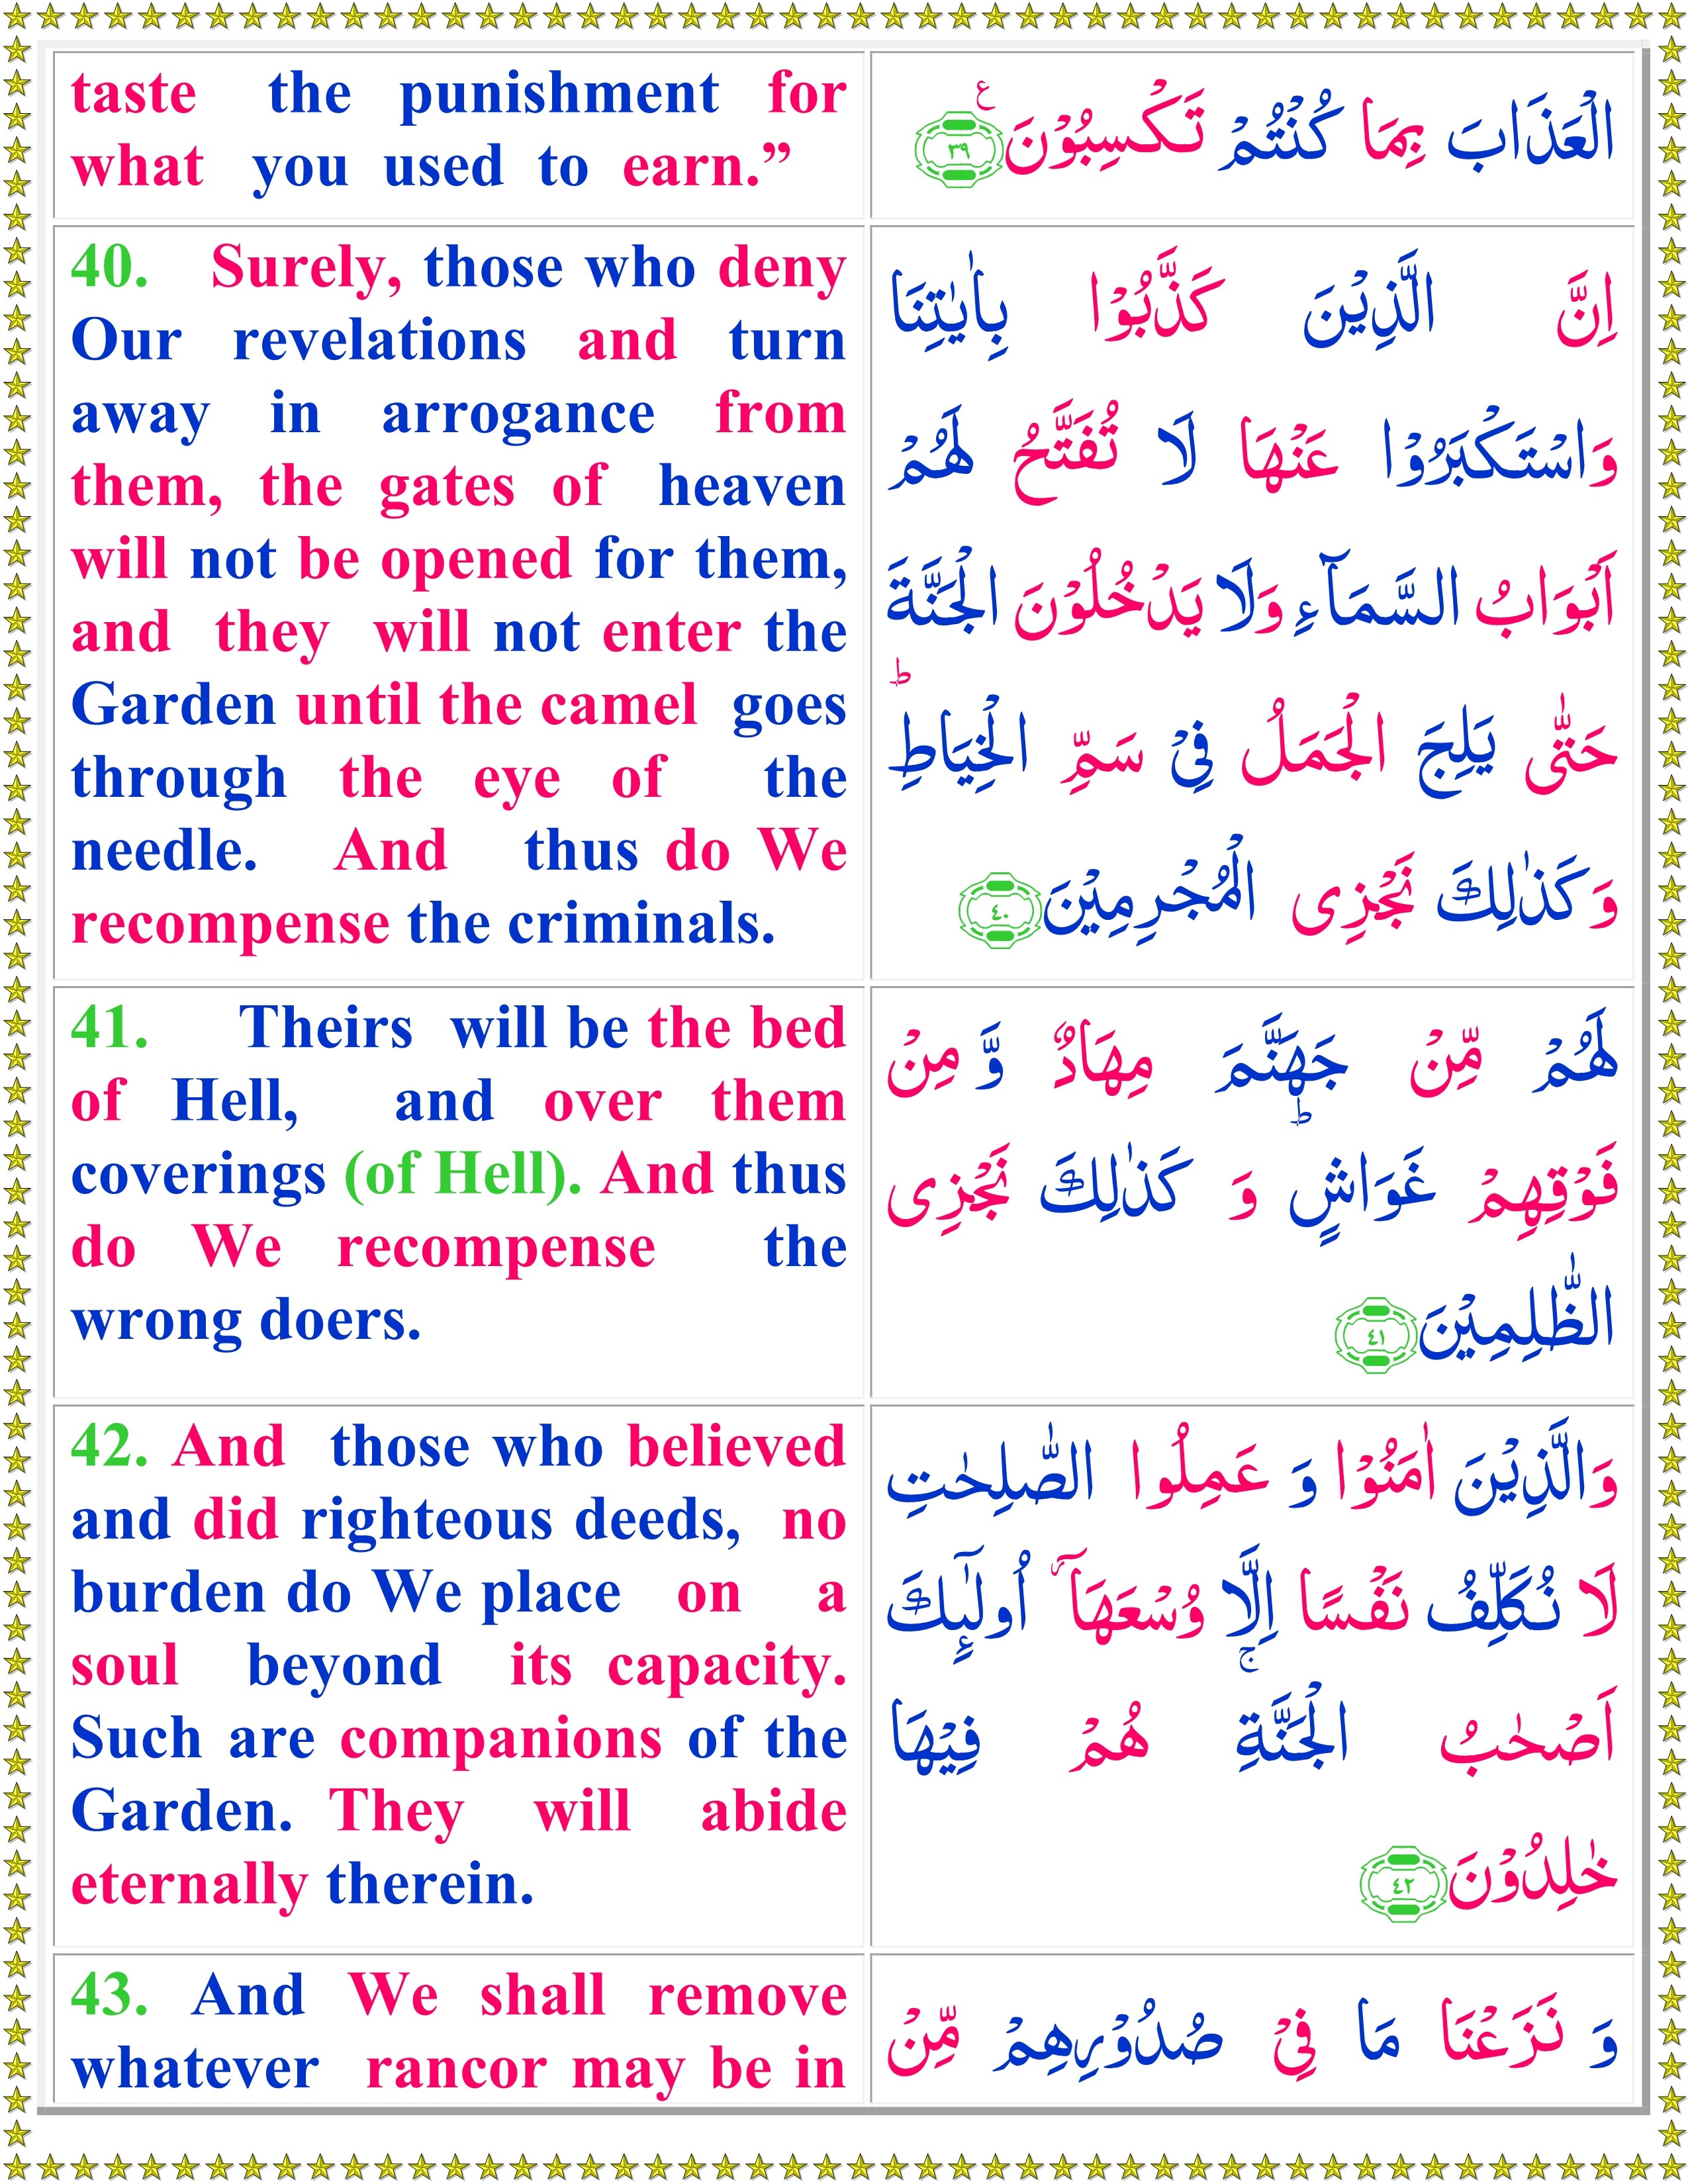 taste the punishment for
what you used to earn.”
الْعَذَابَ بِمَا كُنْتُمْ تَكْسِبُوْنَ ع ٣٩
40. Surely, those who deny
Our revelations and turn
away in arrogance from
them, the gates of heaven
will not be opened for them,
and they will not enter the
Garden until the camel goes
through the eye of the
needle. And thus do We
recompense the criminals.
اِنَّ الَّذِيْنَ كَذَّبُوْا بِاٰيٰتِنَا
وَاسْتَكْبَرُوْا عَنْهَا لَا تُفَتَّحُ لَهُمْ
اَبْوَابُ السَّمَآءِ وَلَا يَدْخُلُوْنَ الْجَنَّةَ
حَتّٰى يَلِجَ الْجَمَلُ فِىْ سَمِّ الْخِيَاطِ ط
وَكَذٰلِكَ نَجْزِى الْمُجْرِمِيْنَ ٤٠
41. Theirs will be the bed
of Hell, and over them
coverings (of Hell). And thus
do We recompense the
wrong doers.
لَهُمْ مِّنْ جَهَنَّمَ مِهَادٌ وَّ مِنْ
فَوْقِهِمْ غَوَاشٍ ط وَ كَذٰلِكَ نَجْزِى
الظّٰلِمِيْنَ ٤١
42. And those who believed
and did righteous deeds, no
burden do We place on a
soul beyond its capacity.
Such are companions of the
Garden. They will abide
eternally therein.
وَالَّذِيْنَ اٰمَنُوْا وَ عَمِلُوا الصّٰلِحٰتِ
لَا نُكَلِّفُ نَفْسًا اِلَّا وُسْعَهَآ اُولٰٓئِكَ
اَصْحٰبُ الْجَنَّةِ ج هُمْ فِيْهَا
خٰلِدُوْنَ ٤٢
43. And We shall remove
whatever rancor may be in
وَ نَزَعْنَا مَا فِىْ صُدُوْرِهِمْ مِّنْ